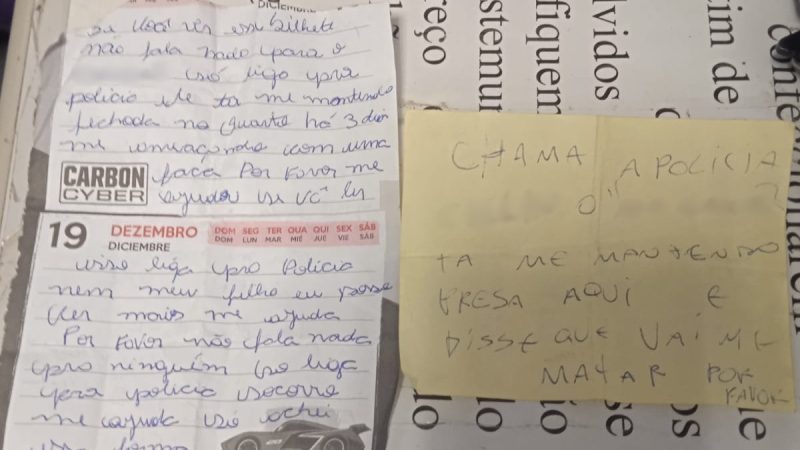 DEZEMBRO
se você ver esse bilhete
não fala nada para o
só liga pra
policia ele ta me mantendo
fechada no quarto há 3 dias
me ameaçando com uma
faca Por Favor me
ajuda se vc ler
CARBON
CYBER
19 DEZEMBRO
DICIEMBRE
DOM SEG TER QUA QUI SEX SÁB
DOM LUN MAR MIÉ JUE VIE SÁB
isso liga pro Policia
nem meu filho eu posso
ver mais me ajuda
Por Favor não fala nada
pro ninguém só liga
para policia socorro
me ajuda só achei
essa forma
CHAMA A POLICIA
O
TA ME MANTENDO
PRESA AQUI E
DISSE QUE VAI ME
MATAR POR
FAVOR